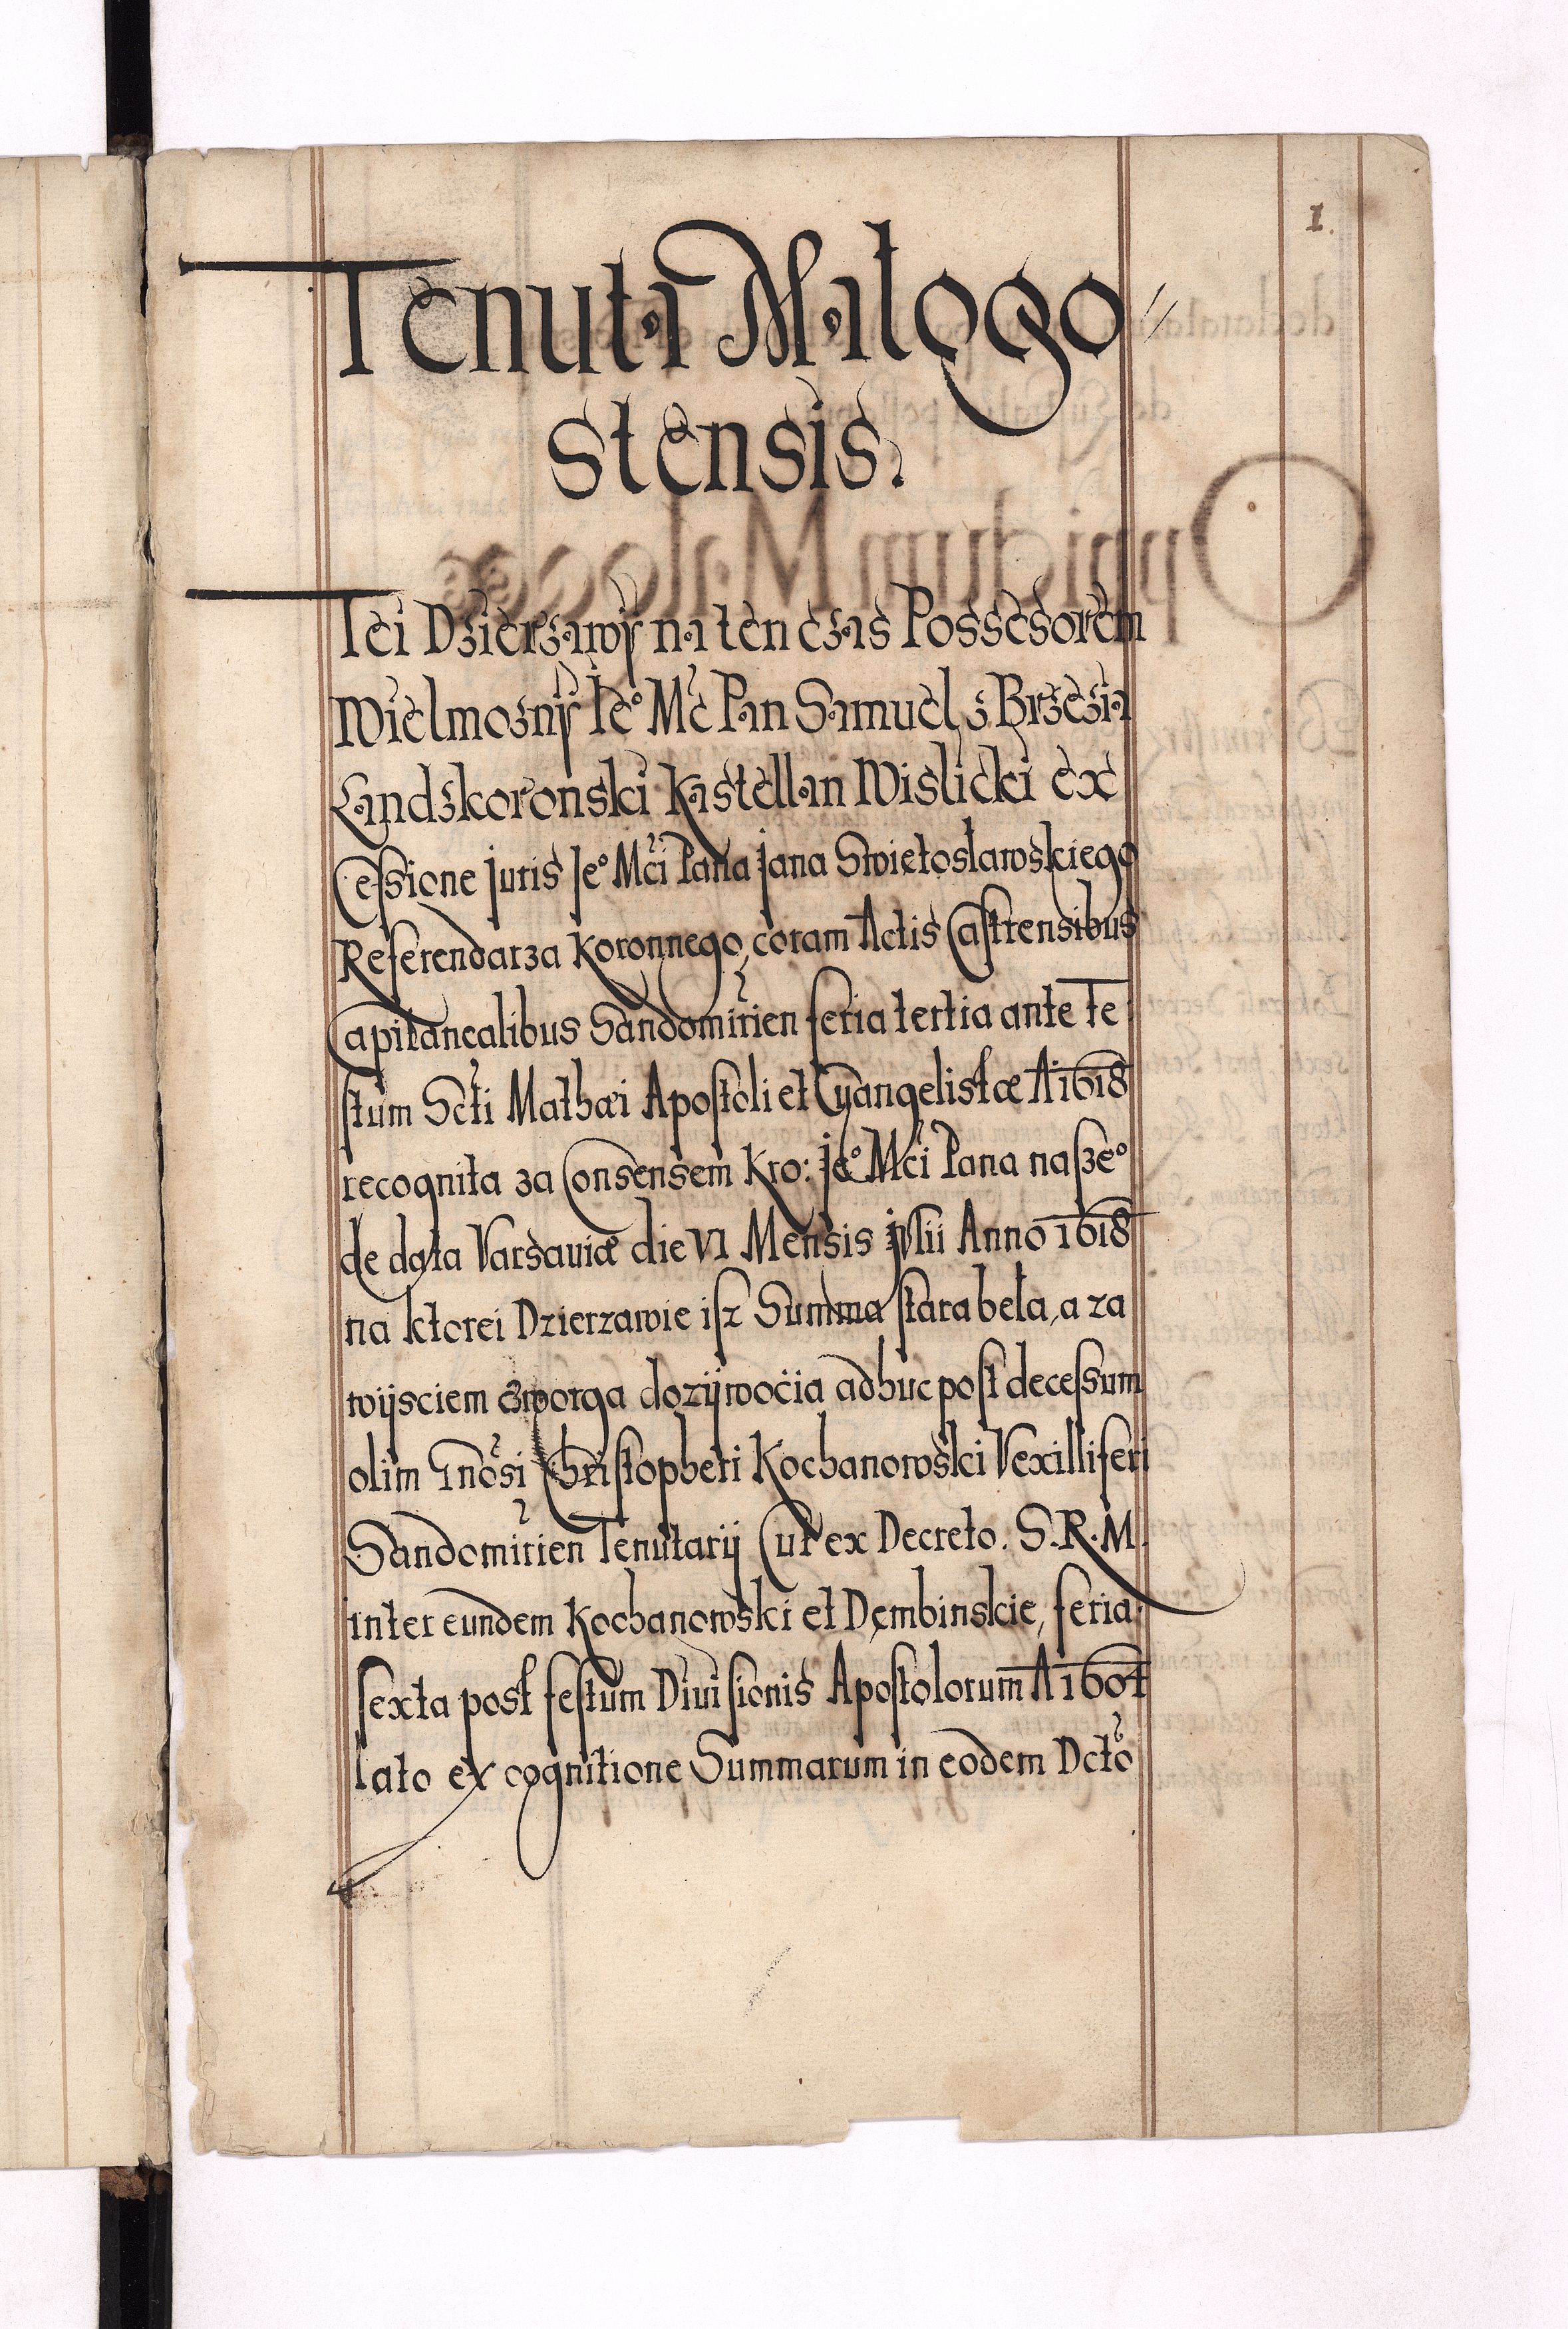 1.
Tenuta Małogo//
stensis.
Tei Dzierzawÿ na ten czas Possesorem
Wielmoznÿ Ie° Mc Pan Samuel z Brzezia
Landzkoronski Kastellan Wislicki ex
Cessione juris Je° Mci Pana Jana Swiętosławskiego
Referendarza Koronnego, coram Actis Castrensibus
Capitanealibus Sandomirien feria tertia ante Fe
stum Scti Mathæi Apostoli et Evangelistæ A 1618
recognita za Consensem Kro: Je° Mci Pana nasze°
de data Varsauiæ die VI Mensis Julii Anno 1618
na ktorei Dzierzawie isz Summa stara beła, a za
wÿsciem dozÿwocia adhuc post decessum
olim Gnosi Christopheri Kochanowski Vexilliferi
Sandomirien Tenutarÿ Cut ex Decreto. S.R.M.
inter eundem Kochanowski et Dembinskie, feria
sexta post festum Diuisionis Apostolorum A 1604
lato ex cognitione Summarum in eodem Dcto